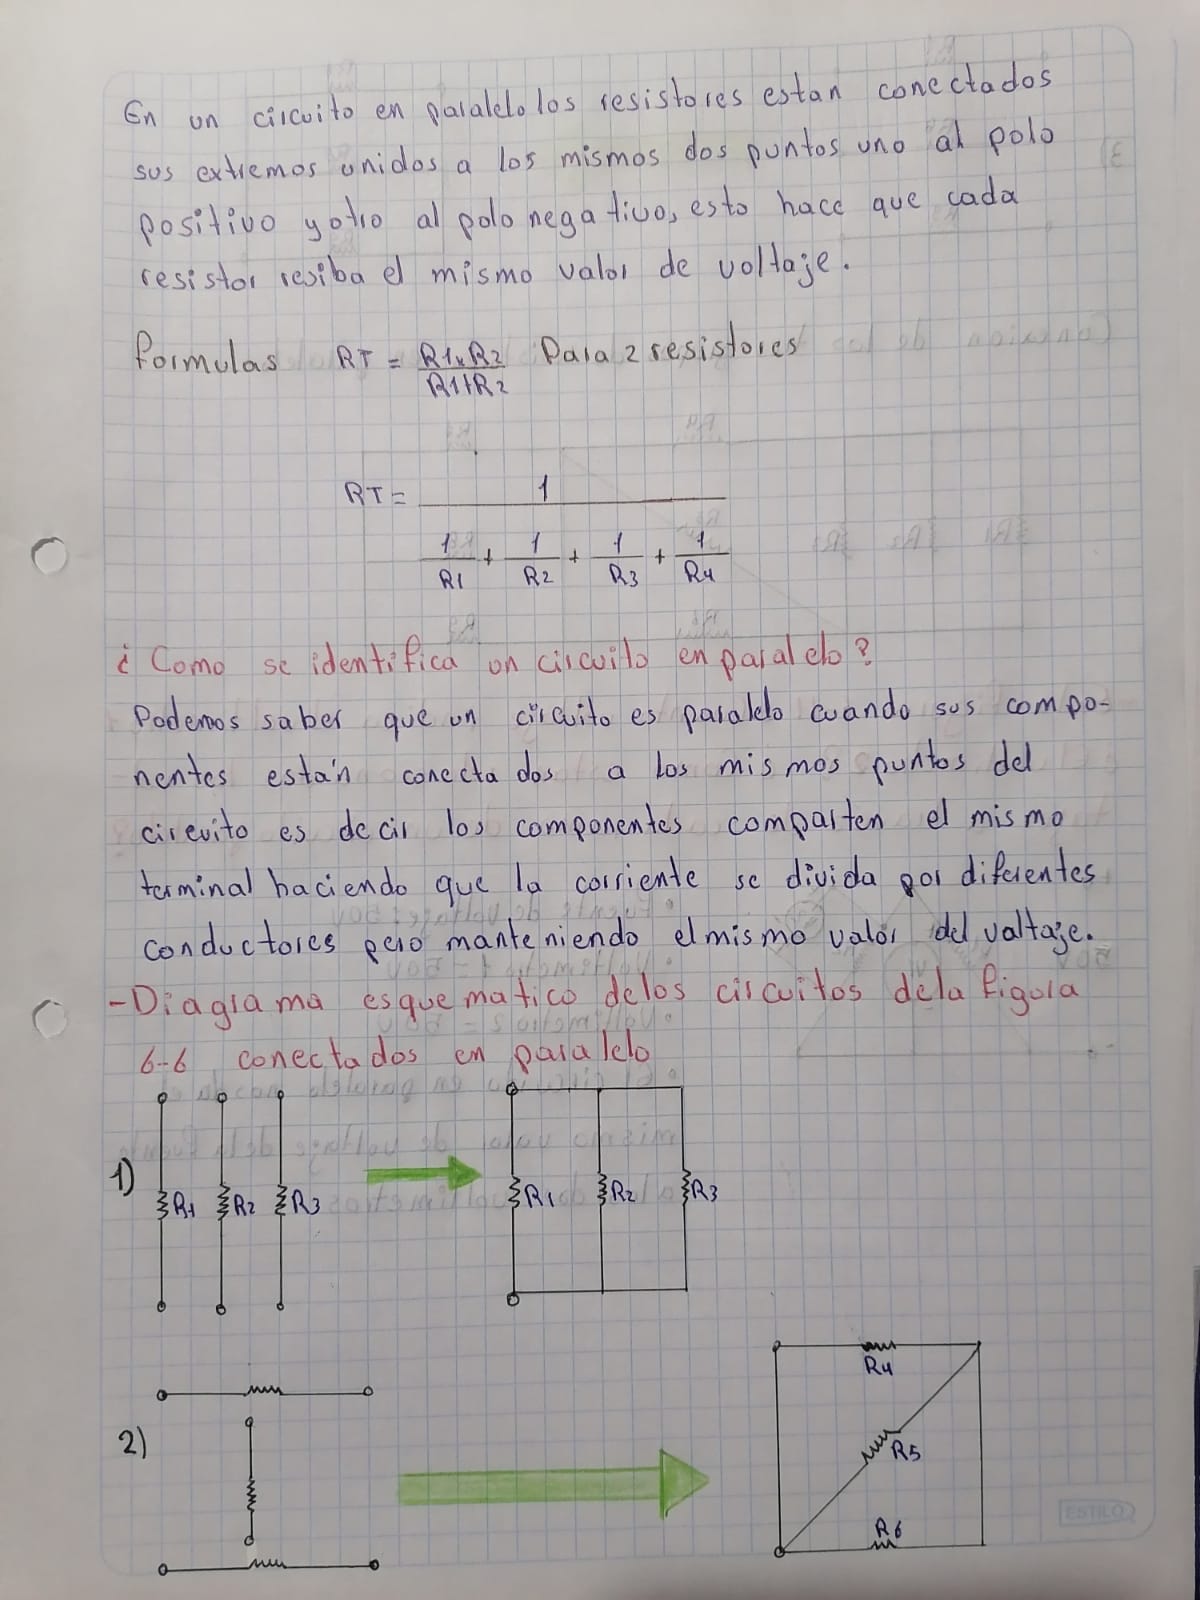 En un circuito en paralelo los resistores estan conectados
sus extremos unidos a los mismos dos puntos uno al polo
positivo y otro al polo negativo, esto hace que cada
resistor resiba el mismo valor de voltaje.
formulas RT = R1xR2 / R1+R2 Para 2 resistores
RT = 1
1/R1 + 1/R2 + 1/R3 + 1/R4
¿Como se identifica un circuito en paralelo?
Podemos saber que un circuito es paralelo cuando sus compo-
nentes están conectados a los mismos puntos del
circuito es decir los componentes comparten el mismo
terminal haciendo que la corriente se divida por diferentes
conductores pero manteniendo el mismo valor del voltaje.
-Diagrama esquematico de los circuitos de la figura
6-6 conectados en paralelo
1)
R1 R2 R3 R1 R2 R3
2)
R4
R5
R6
ESTILO